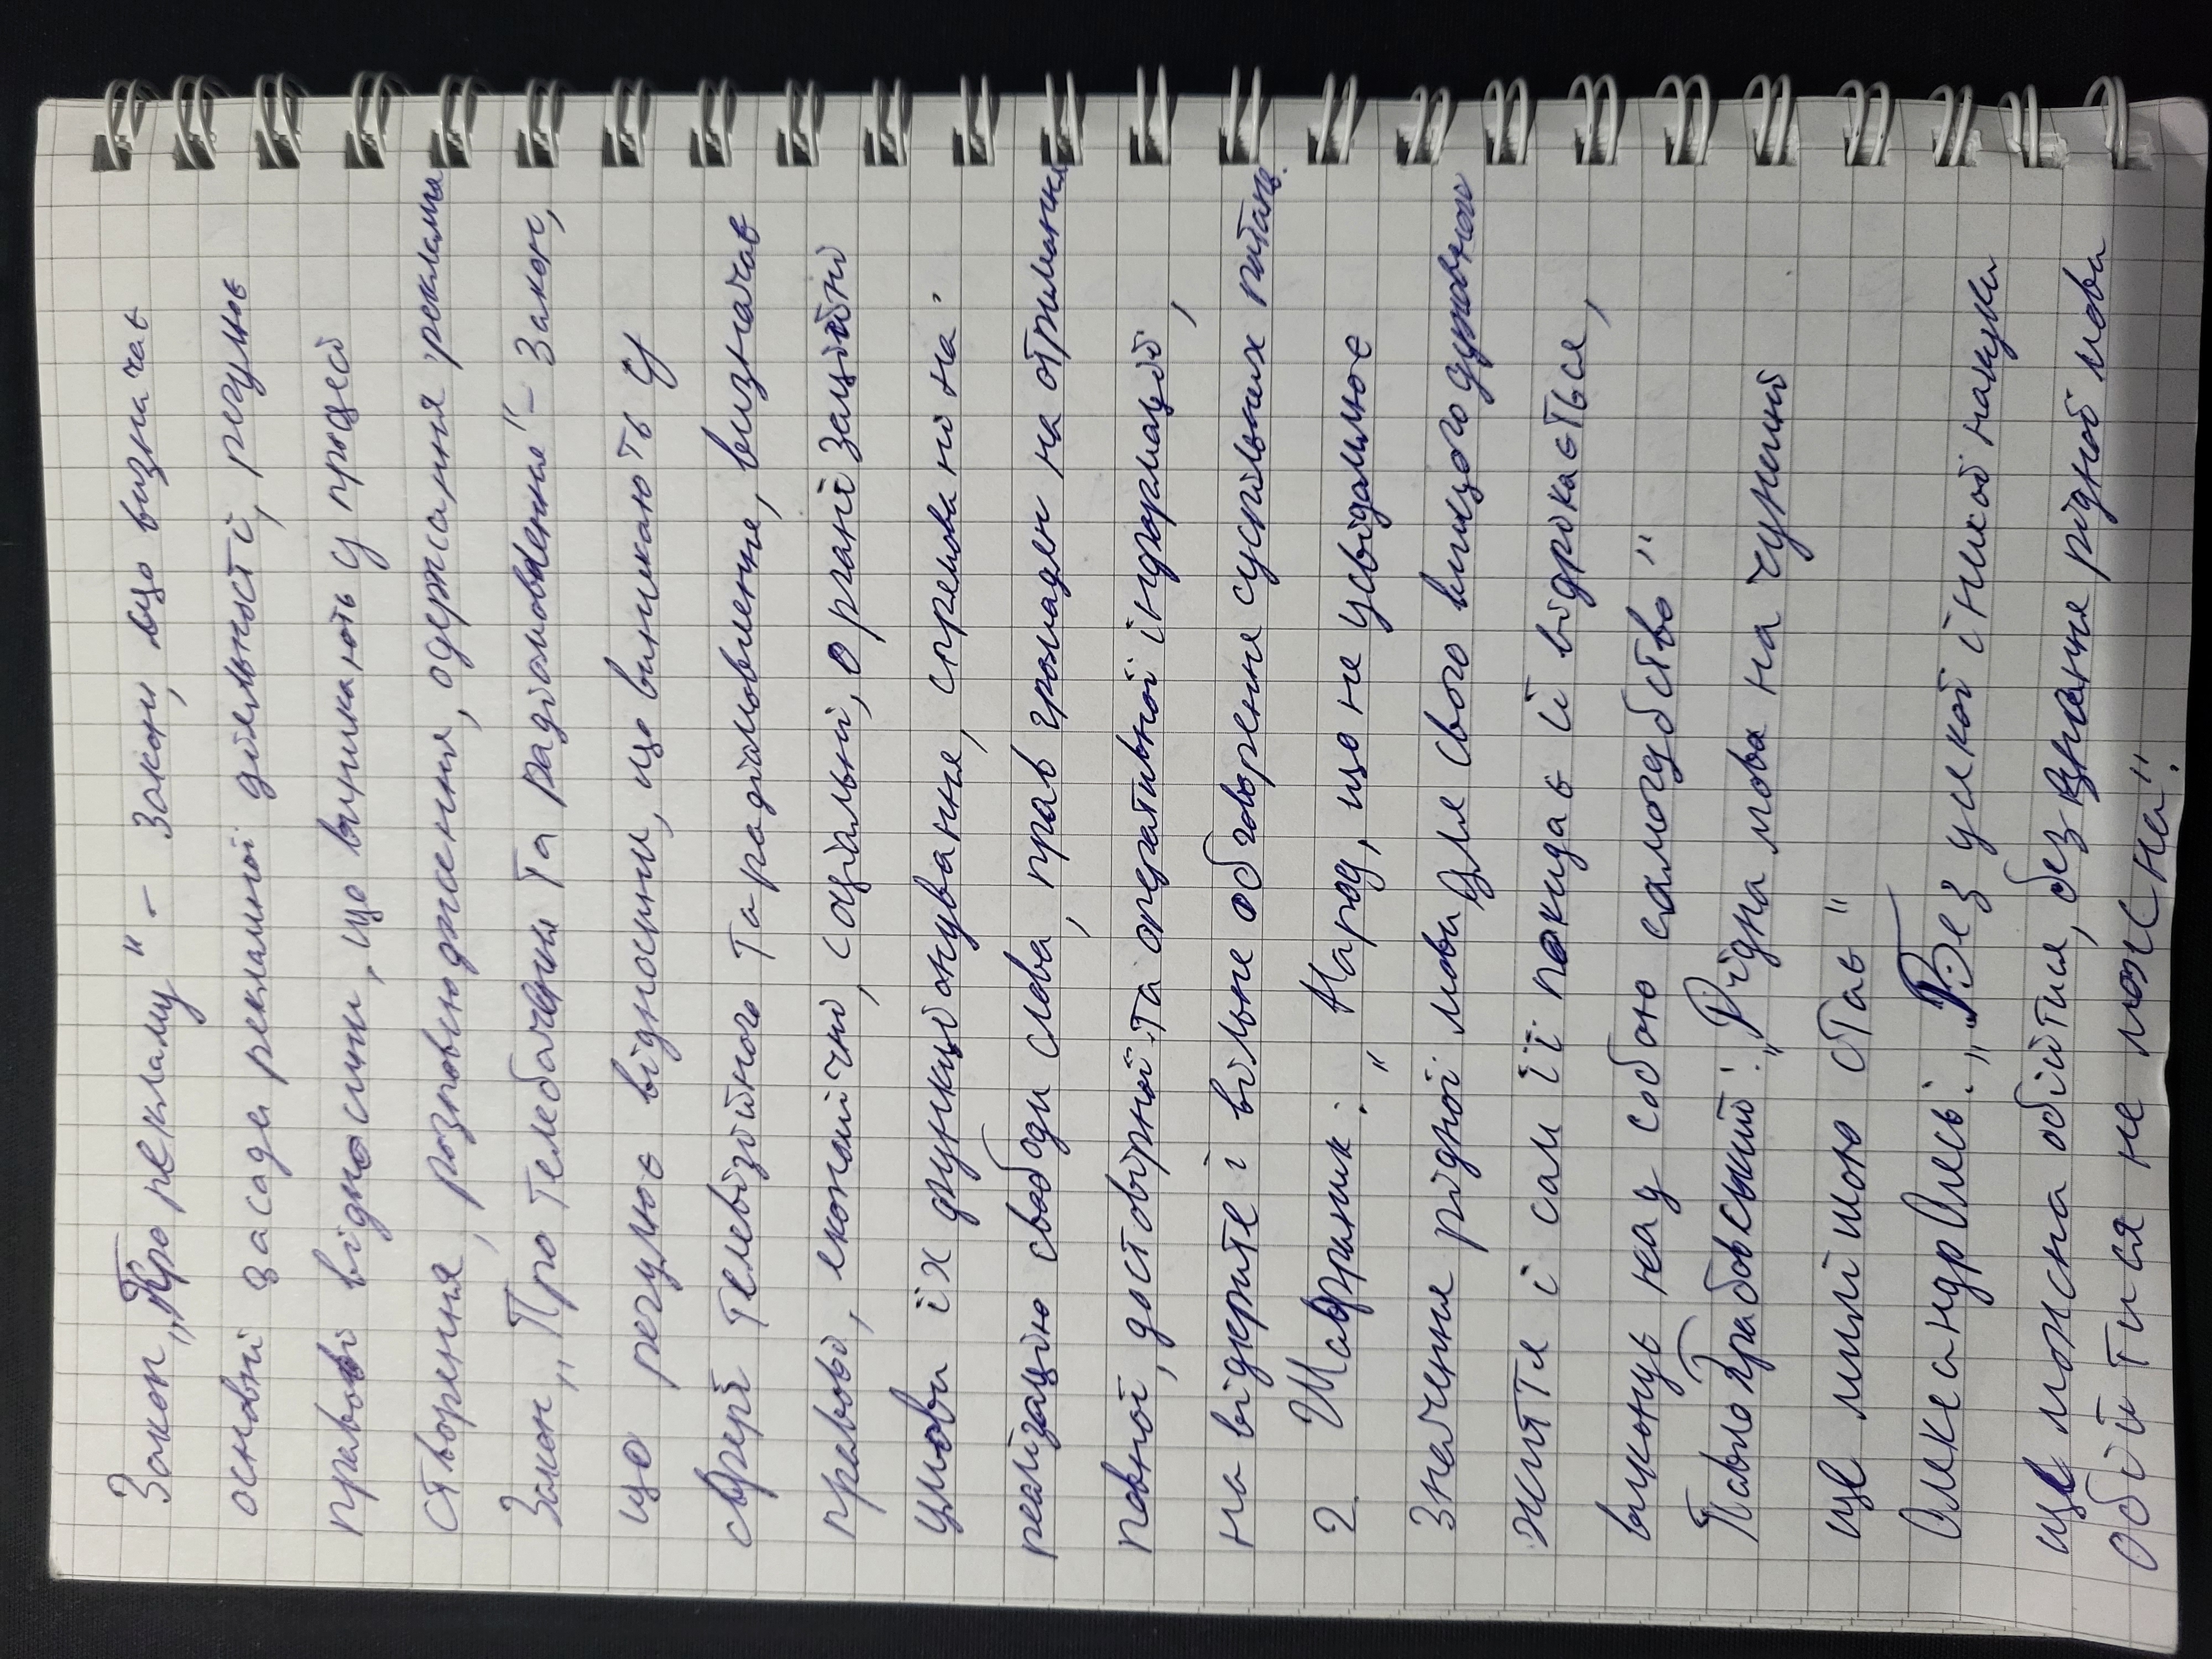 Закон „Про рекламу" – закон, що визначає
основні засади рекламної діяльності, регулює
правові відносини, що виникають у процесі
створення, розповсюдження, одержання реклами
Закон „Про телебачення та радіомовлення" – закон,
що регулює відносини, що виникають у
сфері телевізійного та радіомовлення, визначає
правові, економічні, соціальні, організаційні
умови їх функціонування, спрямовані на
реалізацію свободи слова, прав громадян на отримання
повної, достовірної та оперативної інформації,
на відкрите і вільне обговорення суспільних питань.
2. Шафраник: „Народ, що не усвідомлює
значення рідної мови для свого вищого духовного
життя і сам її покидає й відрікається,
виконує над собою самогубство"
Павло Грабовський: „Рідна мова на чужині
ще милішою стає"
Олександр Олесь: „Без усякої іншої науки
ще можна обійтися, без знання рідної мови
обійтися не можна".